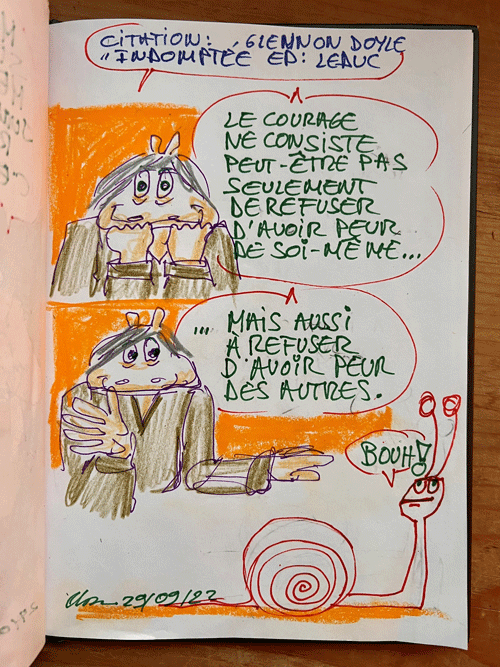 CITATION: GLENNON DOYLE
"INDOMPTÉE ED: LEDUC
LE COURAGE
NE CONSISTE
PEUT-ÊTRE PAS
SEULEMENT
DE REFUSER
D'AVOIR PEUR
DE SOI-MÊME...
... MAIS AUSSI
A REFUSER
D'AVOIR PEUR
DES AUTRES.
BOUH!
29/09/22